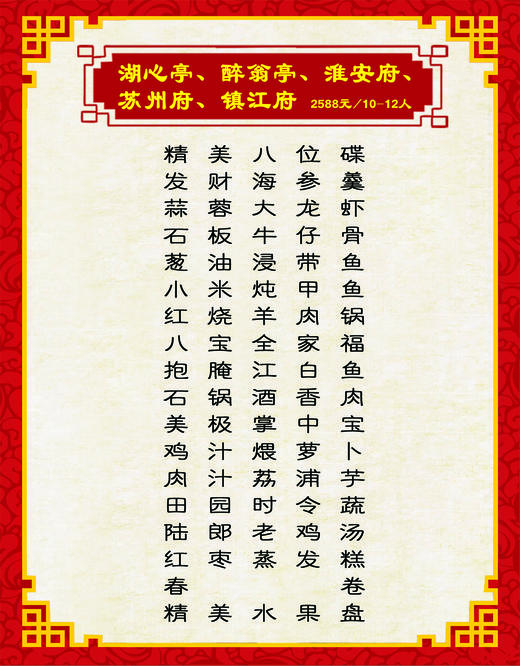 湖心亭、醉翁亭、淮安府、
苏州府、镇江府 2588元/10-12人
精美八位碟
发财海参羹
蒜蓉大龙虾
石板牛仔骨
葱油浸带鱼
小米炖甲鱼
红烧羊肉锅
八宝全家福
抱腌江白鱼
石锅酒香肉
美极掌中宝
鸡汁煨萝卜
肉汁荔浦芋
田园时令蔬
陆郎老鸡汤
红枣蒸发糕
春卷
精美水果盘